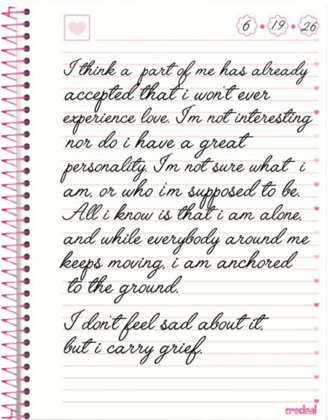 6 • 19 • 26
I think a part of me has already
accepted that i won't ever
experience love. I'm not interesting
nor do i have a great
personality. I'm not sure what i
am, or who i'm supposed to be.
All i know is that i am alone,
and while everybody around me
keeps moving, i am anchored
to the ground.
I don't feel sad about it,
but i carry grief.
credeal